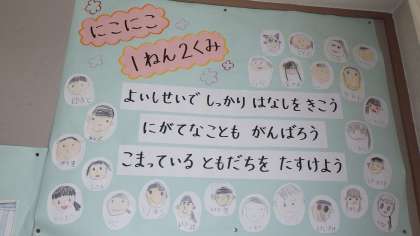 にこにこ
1ねん2くみ
よいしせいで しっかり はなしを きこう
にがてなことも がんばろう
こまっている ともだちを たすけよう